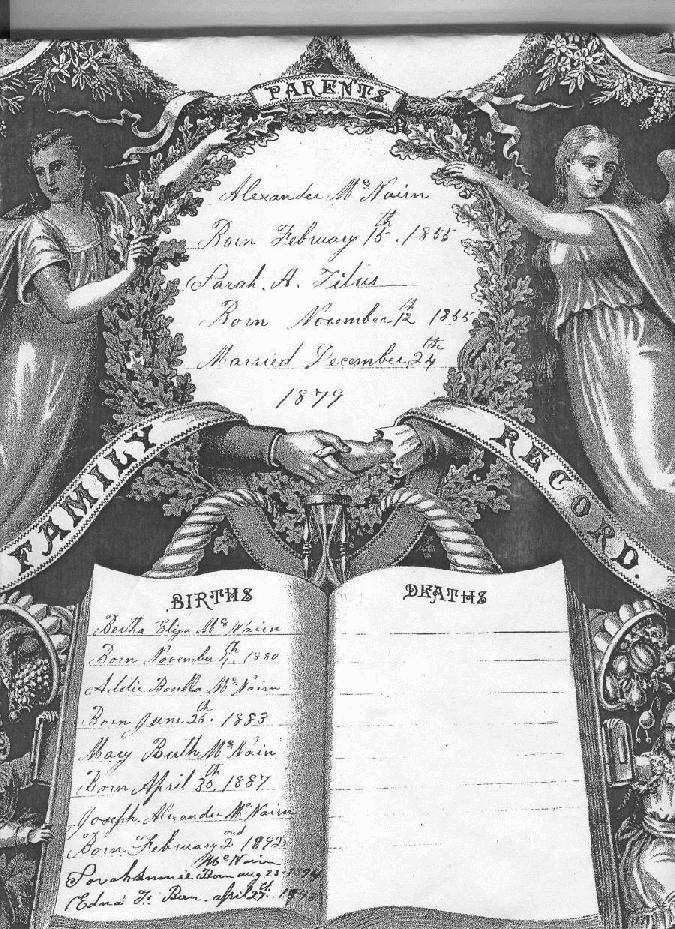 PARENTS
Alexander McNairn
Born February 15th. 1855
Sarah. A. Titus
Born November 12th 1855
Married December 24th
1879
FAMILY RECORD.
BIRTHS
Bertha Eliza McNairn
Born November 4th. 1880
Addie McNairn
Born June 26th. 1883
Mary Beath McNairn
Born April 30th 1887
Joseph Alexander McNairn
Born February 2nd 1892
McNairn
Born aug
Edna F. Born. april 27th.
DEATHS